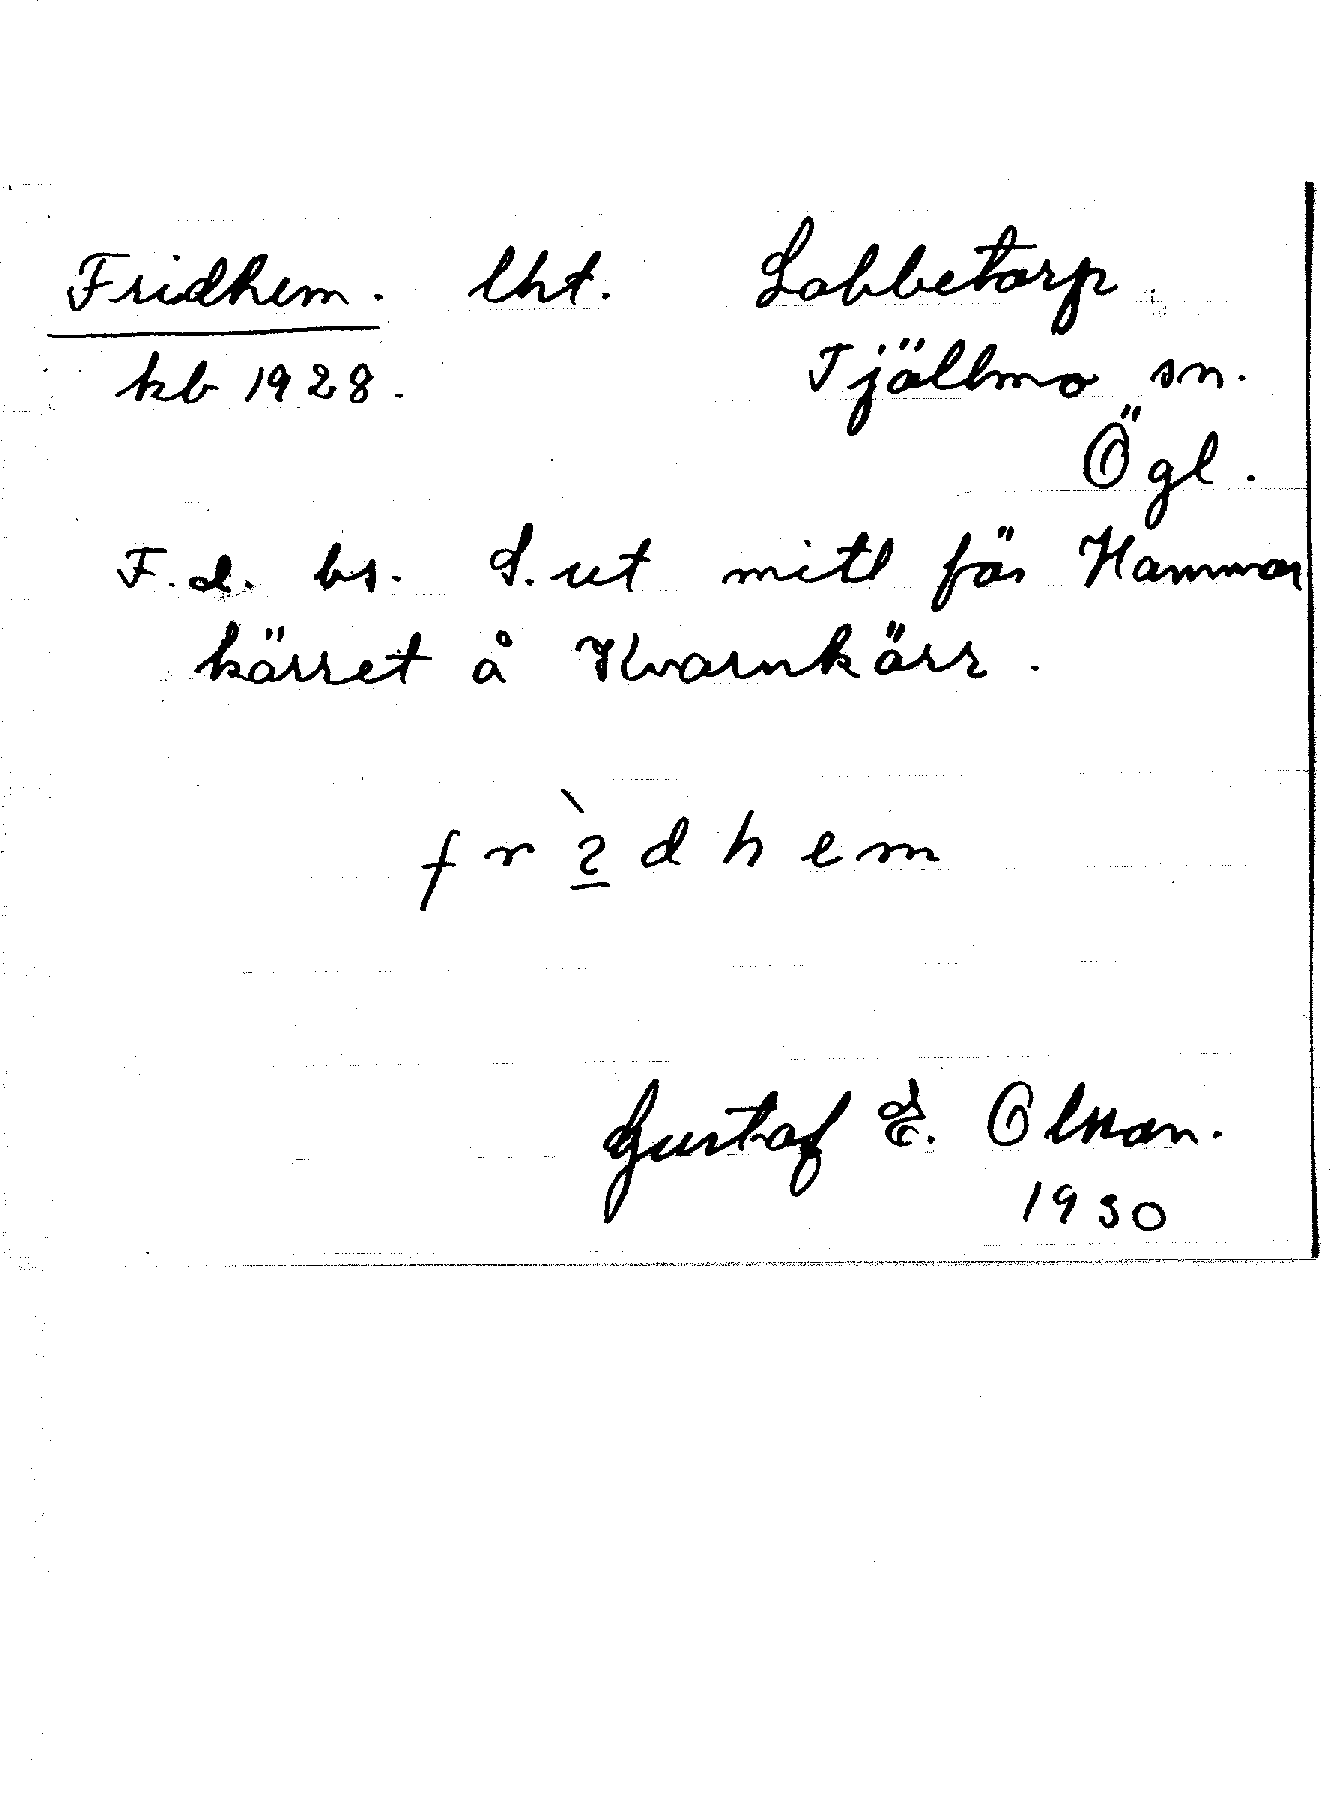 Fridhem. lht. Labbetorp
kb 1928. Tjällmo sn.
Ögl.
F.d. bs. S. ut mitt för Hammar
kärret å Kvarnkärr.
fr dhem
Gustaf E. Olsson.
1930